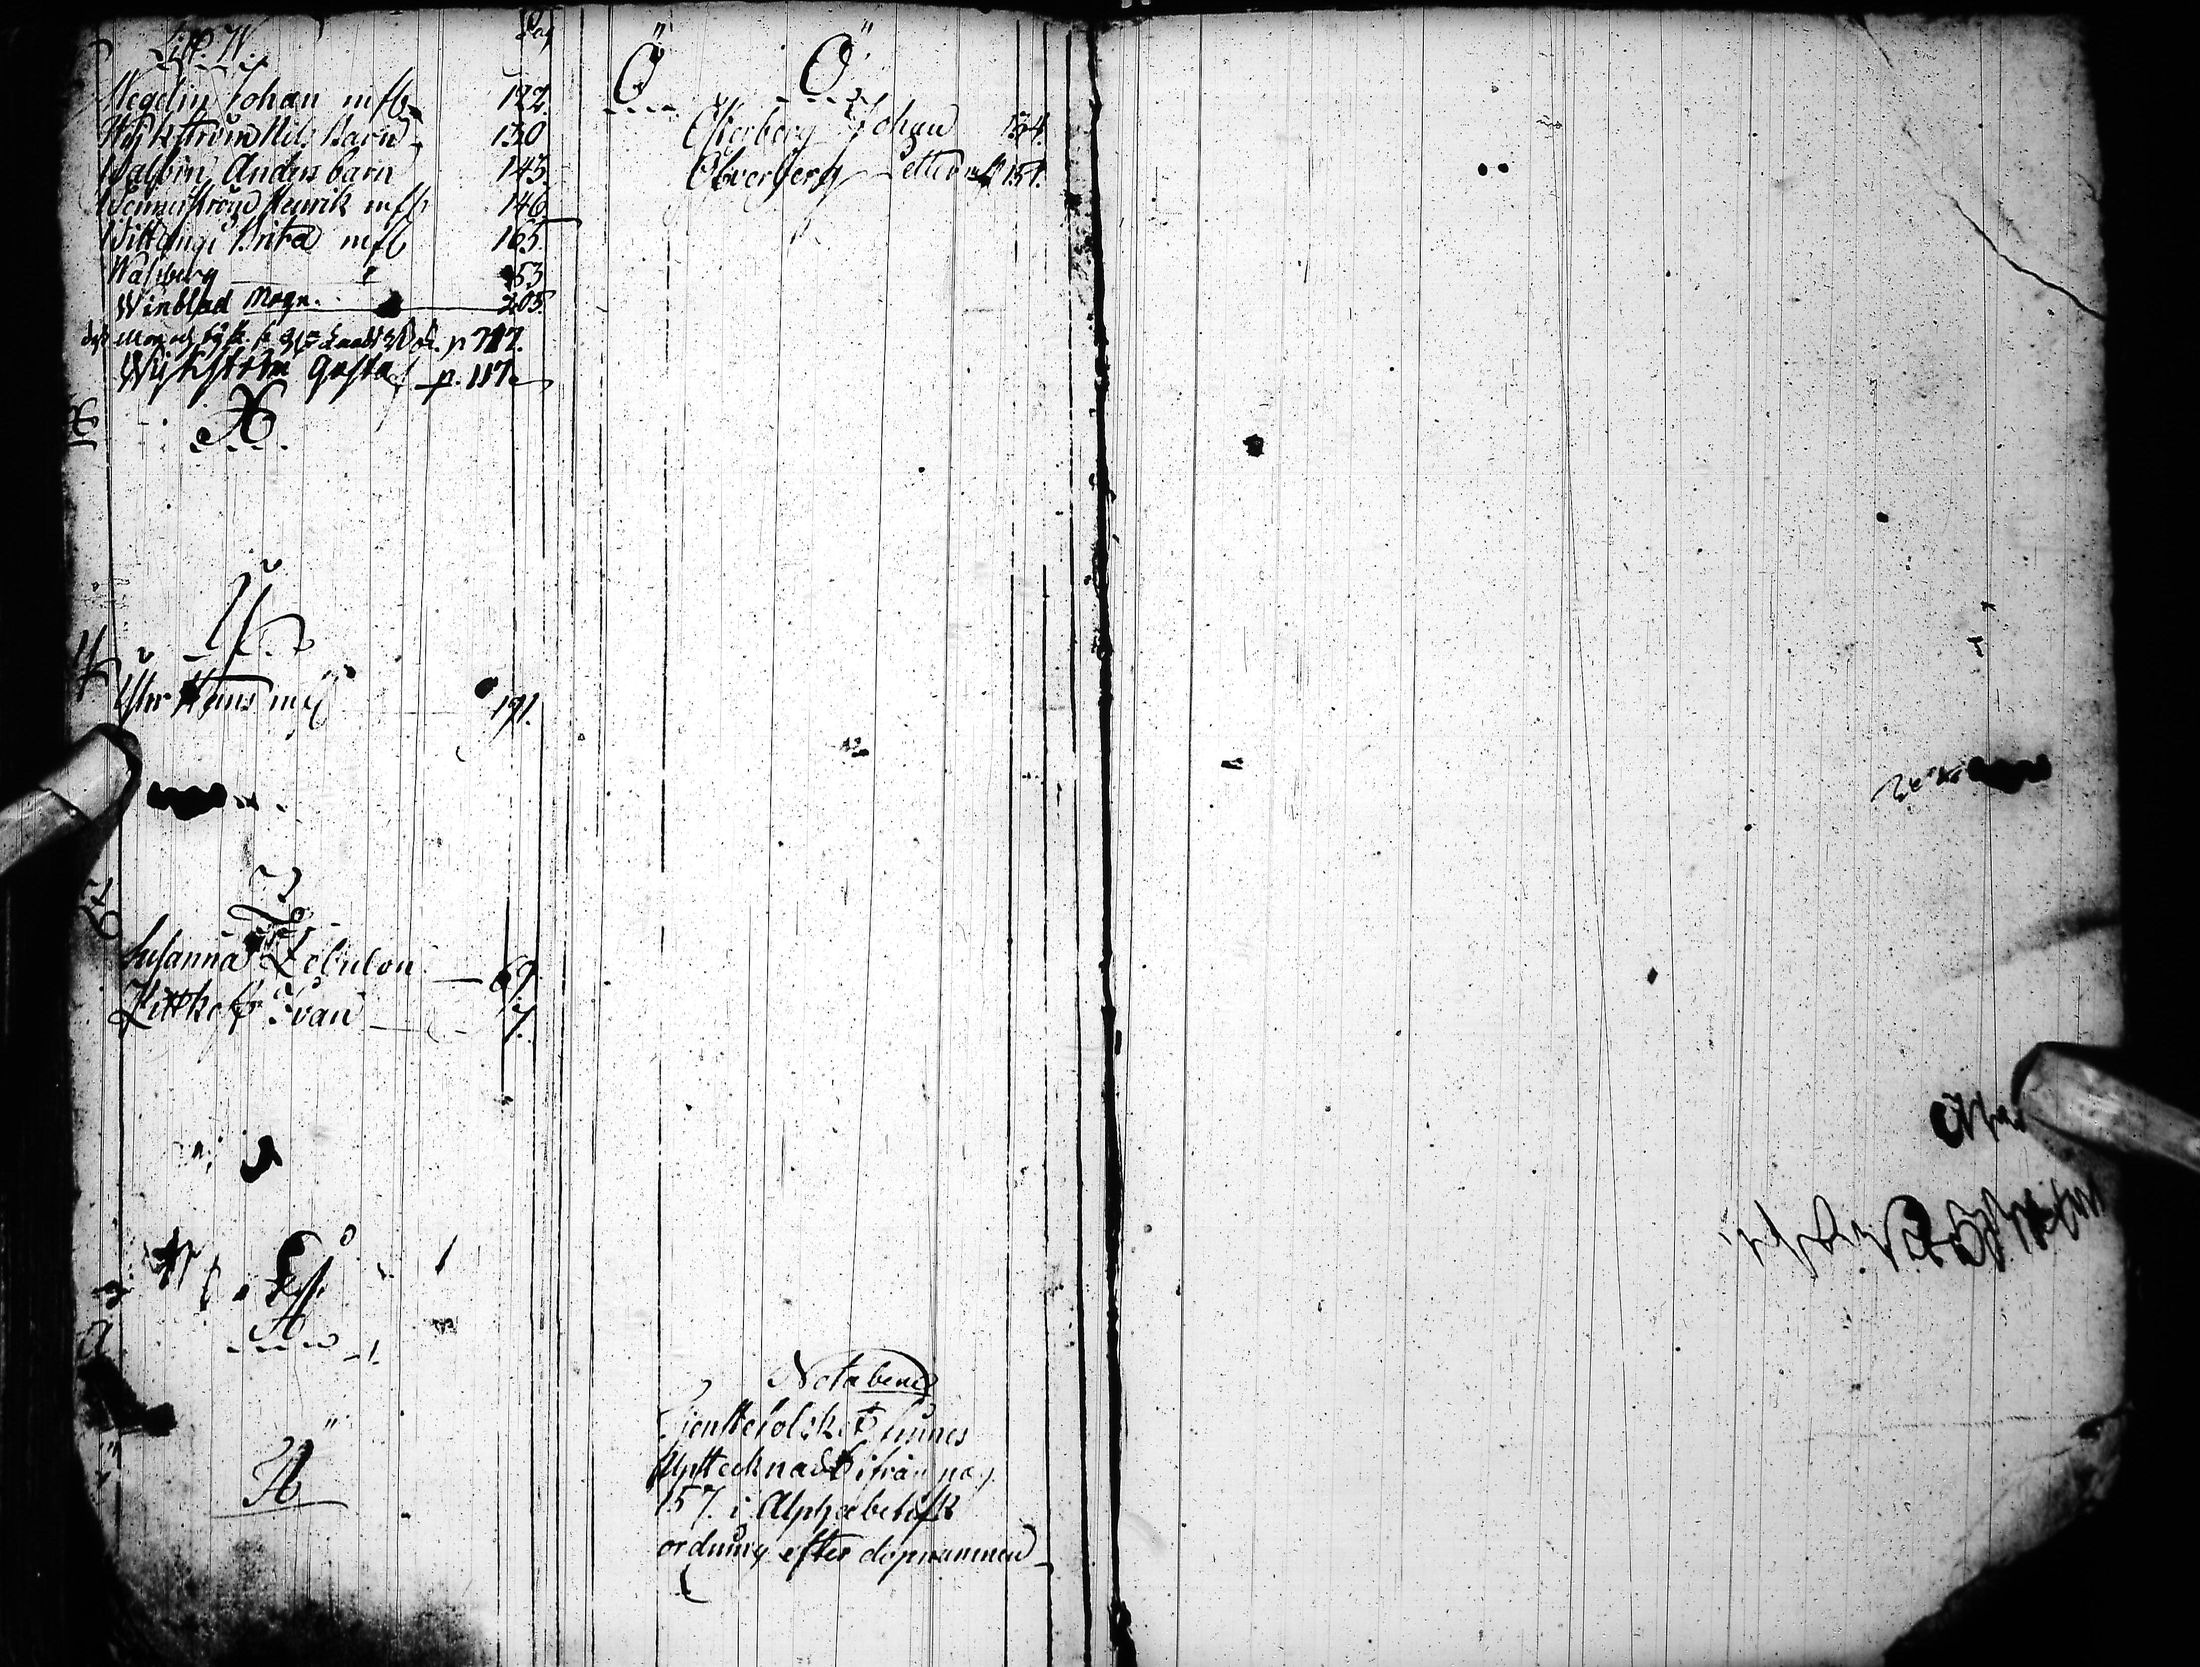 Litt. W. Pag
Wegelin Johan mfb 122.
Wykström Nils Barn 130
Walbin Anders barn 143.
Wennerström Henrik mfb 146
Wittangi Brita mfb 165
Wasberg 53
Winblad Magn. 205.
p 717.
Wykström Gustaf p. 117.
X
X
Y
Y
Yter Hans mfb 191.
Z
Z
Susanna Zebulon 69.
Zittkoff Ivan 7.
Å
Å
Ä
Ö Ö
Österberg Johan 154.
Öfverberg 151.
Notabene
Tjenstefolket finnes
Upptecknadt ifrån pag.
157. i Alphabetisk
ordning efter dopnamnen